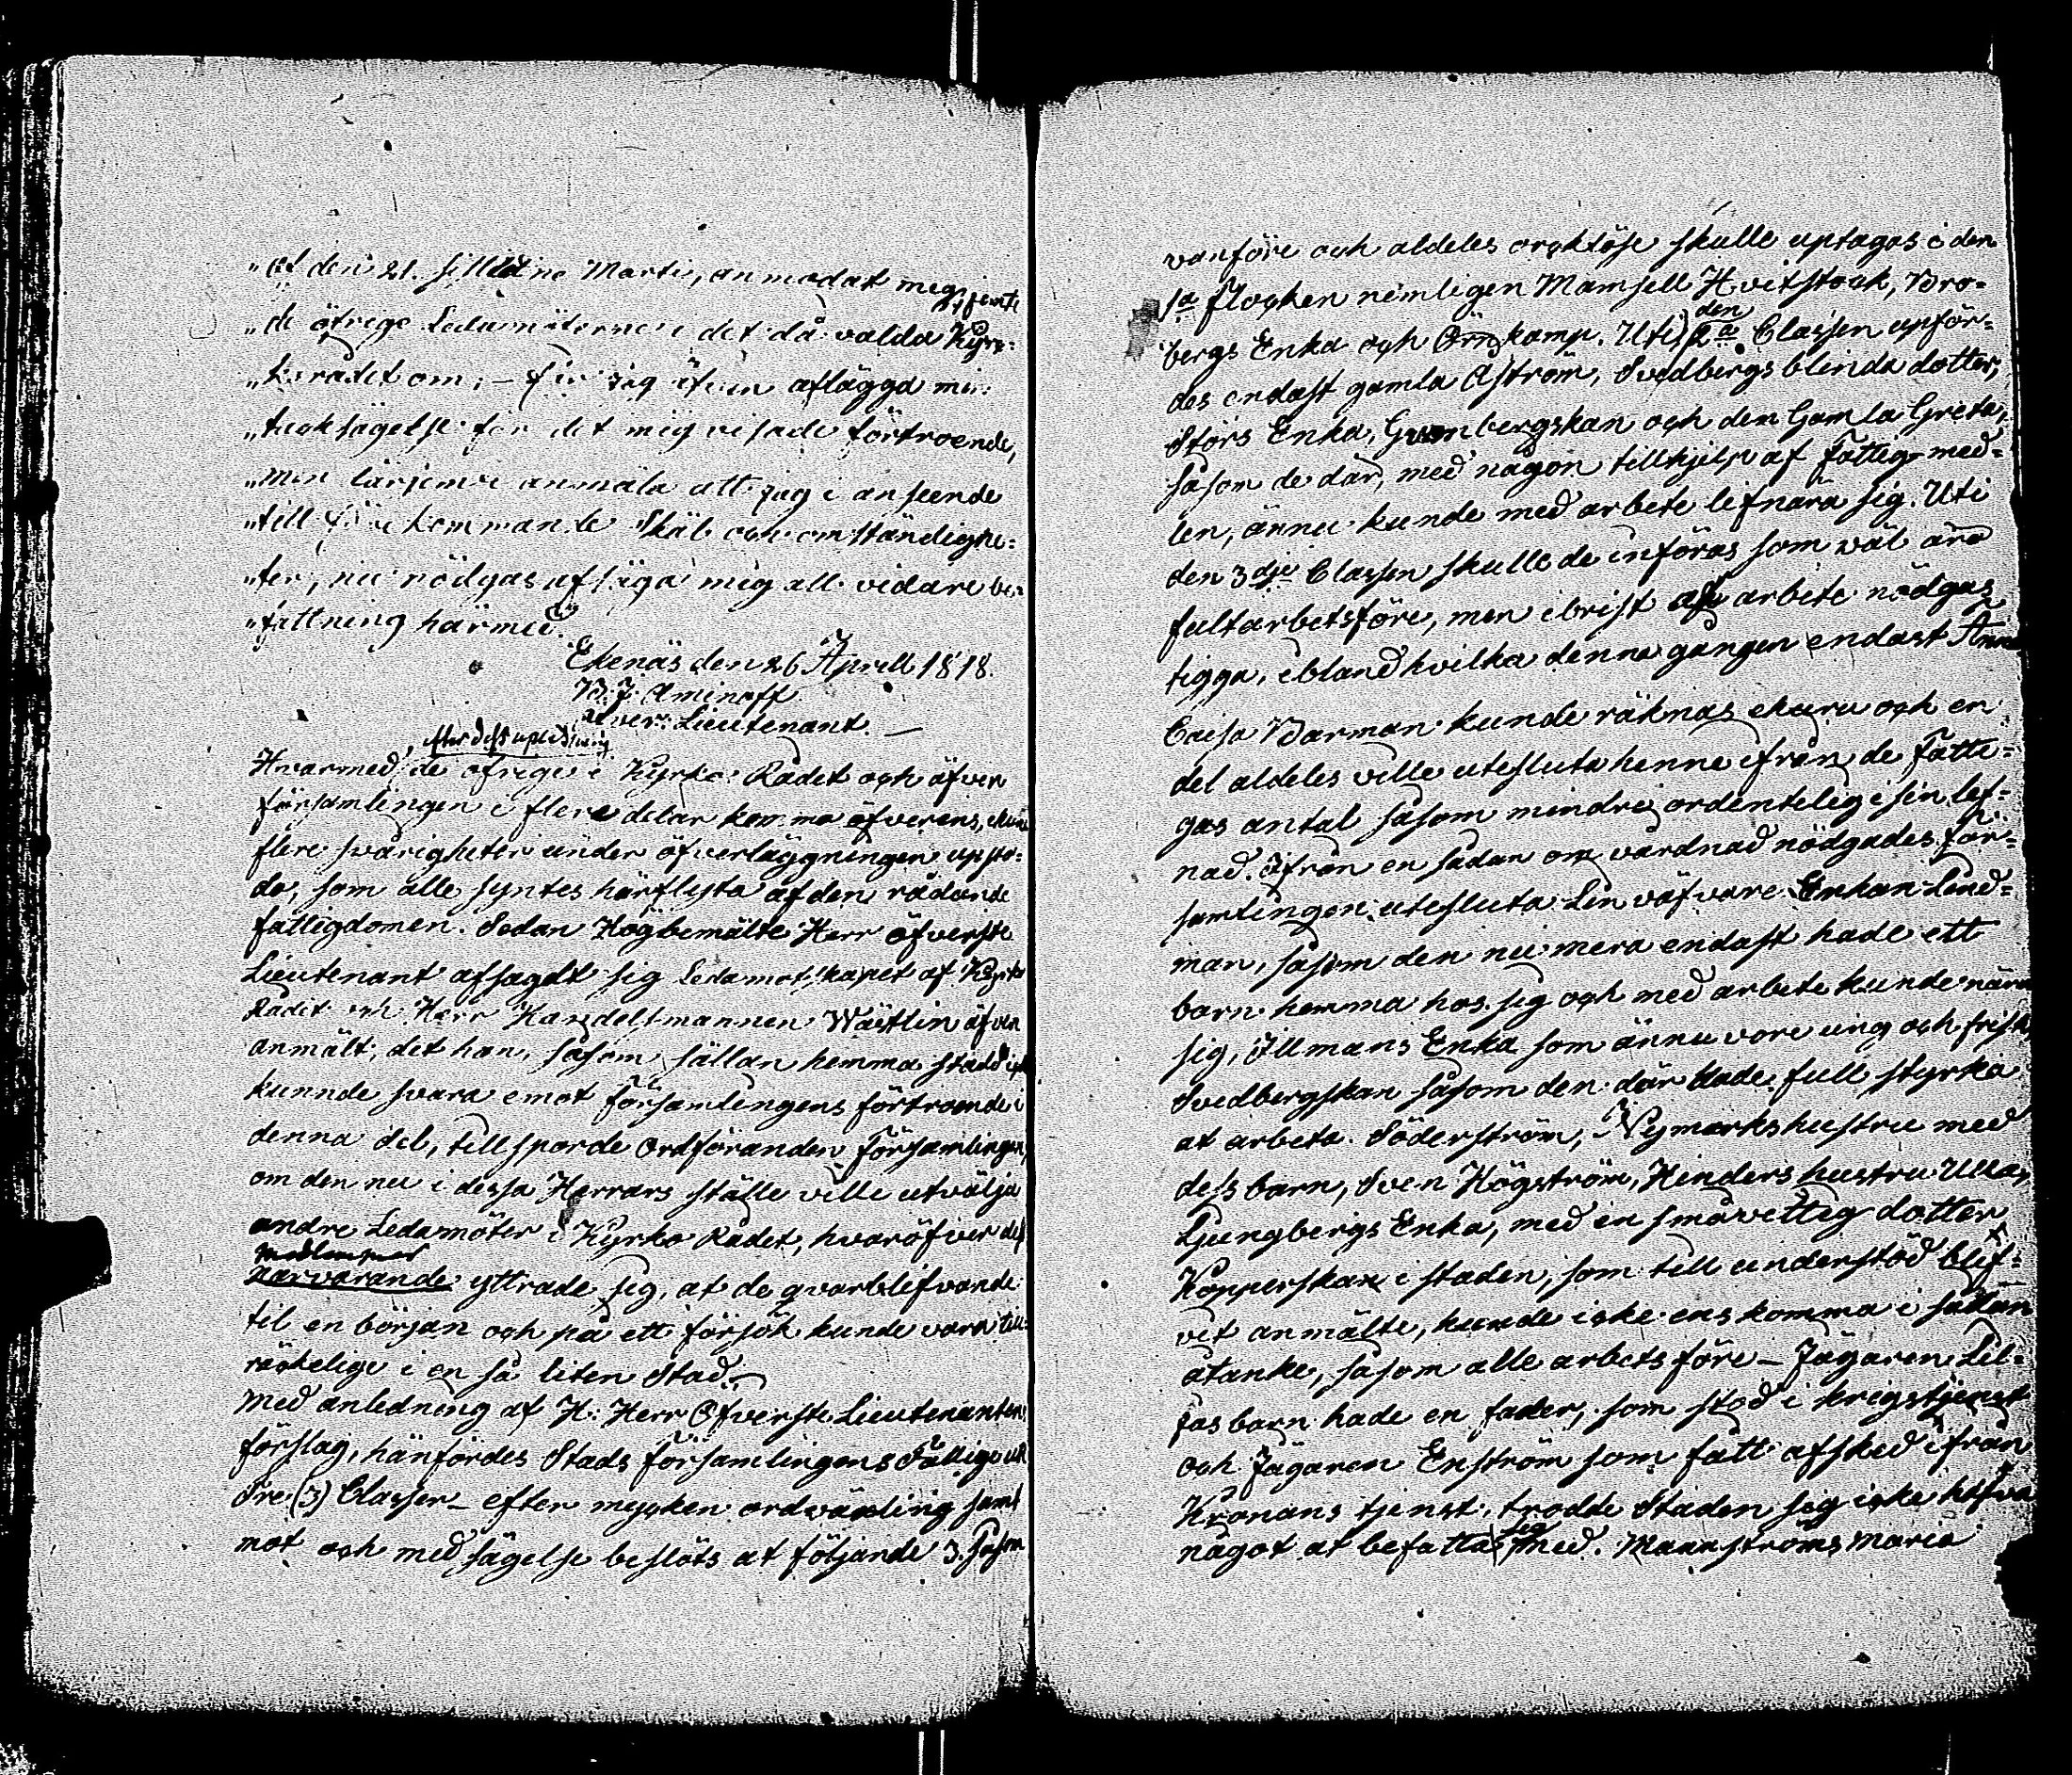 "at den 21. sistledne Martii, anmodat mig, jemte
"de öfrige Ledamöterne i det då valda Kyr-
"koradet om, – får jag äfven aflägga min
"tacksägelse för det mig visade förtroende,
"men lärjemte anmäla att jag i anseende
"till förekommande Skäl och omständighe-
"ter, nu nödgas afsäga mig all vidare be-
"fattning härmed.
Ekenäs den 26 Aprill 1818.
B. J. Aminoff
Lieutenant. —
efter dess upläsning
Hvarmed de öfrige i Kyrko Rådet och äfven
församlingen i flere delar kommo öfverens, ehuru
flere svårigheter under öfverläggningen uppto-
do, som alle syntes härflyta af den rådande
fattigdomen. Sedan Högbemälte Herr öfverste
Lieutenant afsagdt sig Ledamotskapet af Kyrko
Rådet och Herr Handelsmannen Wäitlin äfven
anmält, det han, såsom sällan hemma stadd, ej
kunnde svara emot församlingens förtroende i
denna del, tillsporde ordföranden Församlingen,
om den nu i dessa Herrars ställe ville utvälja
andre Ledamöter i Kyrko Rådet, hvaröfver dess
medlemmar
närvarande yttrade sig, at de qvarblifvande
til en början och på ett försök kunde vara till-
räckelige i en så liten Stad. —
Med anledning af H: Herr Öfverste Lieutenantens
förslag, hänfördes Stads Församlingens Fattige uti
Tre (3) Classer – efter mycken ordväxling samt
mot och med sägelse beslöts at följande 3. såsom
vanföre och aldeles orcklöse skulle uptagas i den
1a Flocken nemligen Mamsell Hvitstock, Bro-
bergs Enka och Örnkamp. Uti den 2a Classen upför-
des endast gamla Åström, Svedbergs blinda dotter,
Störs Enka, Grönbergskan och den Gamla Greta,
såsom de där, med någon tillhjelp af Fattig med-
len, ännu kunde med arbete lifnära sig. Uti
den 3dje Classen skulle de införas som wäl äro
fultarbetsföre, men i brist af arbete nödgas
tigga, ibland hvilka denna gången endast Anna
Caisa Barman kunde räknas ehuru och en
del aldeles ville utesluta henne ifrån de Fatti-
gas antal såsom mindre ordentelig i sin lef-
nad. Ifrån en sådan omvårdnad nödgades För-
samlingen utesluta Linväfvare Enkan Lind-
man, såsom den nu mera endast hade ett
barn hemma hos sig och med arbete kunde nära
sig, Illmans Enka som ännu vore ung och frisk
Svedbergskan såsom den där hade full styrka
at arbeta. Söderström, Nymarks hustru med
dess barn, Sven Högström, Hinders hustru Ulla,
Ljungbergs Enka, med en småvettig dotter
Kopperskan i staden, som till understöd blif-
vit anmälte, kunde icke ens komma i sådan
åtanke, såsom alle arbetsföre – Jägaren Lil-
jas barn hade en fader, som stod i krigstjenst
och Jägaren Enström som fått afsked ifrån
Kronans tjenst, trodde Staden sig icke hafva
något at befatta sig med. Mannströms Maria